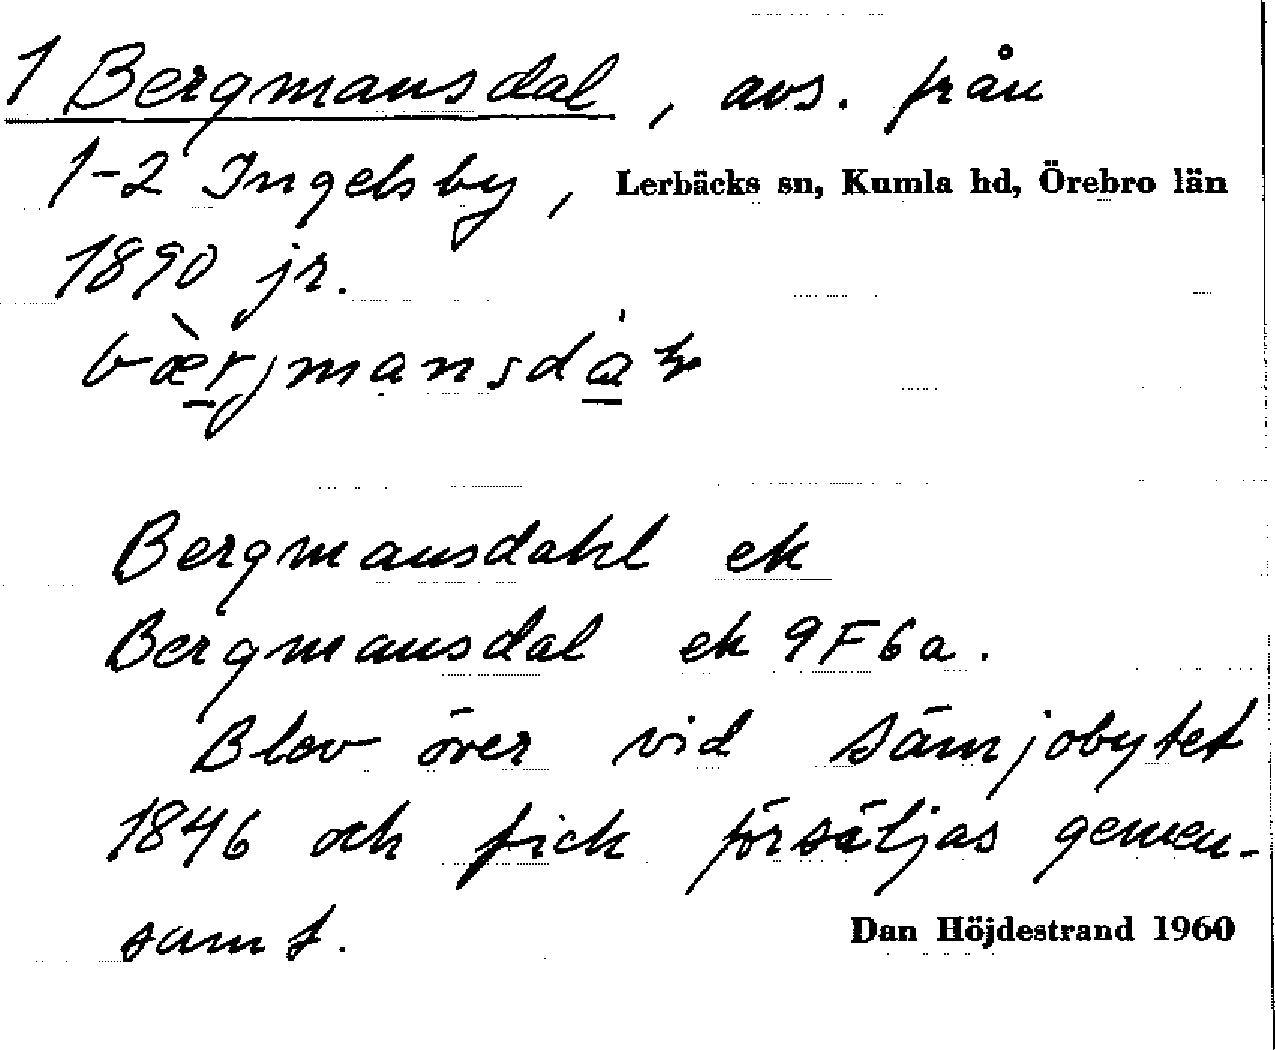 1 Bergmansdal, avs. från
1-2 Ingelsby, Lerbäcks sn, Kumla hd, Örebro län
1890 jr.
bæ̀rjmansdáɫ
Bergmansdahl ek
Bergmansdal ek 9F6a.
Blev över vid sämjobytet
1846 och fick försäljas gemen-
samt.
Dan Höjdestrand 1960